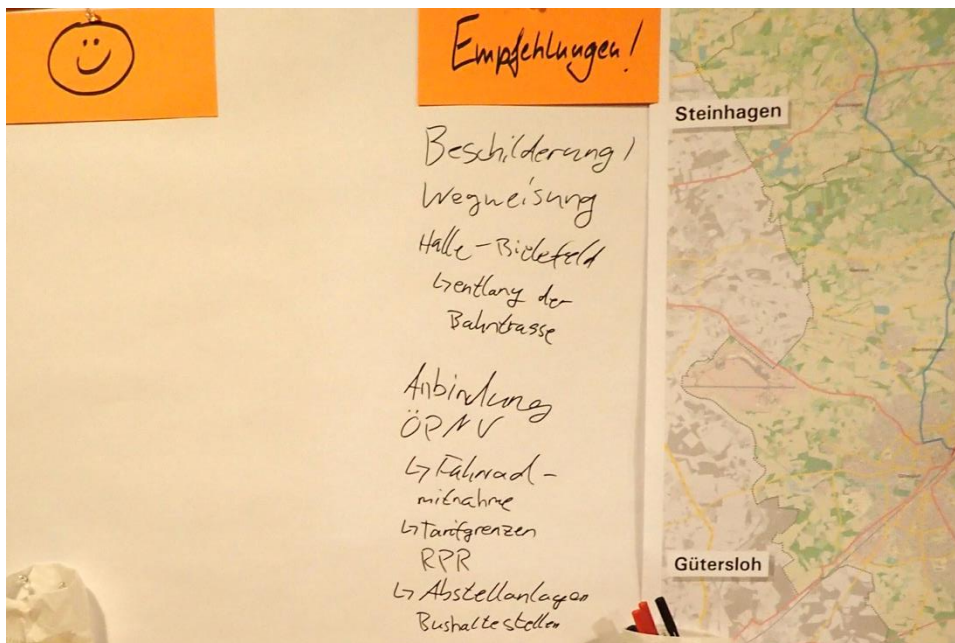 Empfehlungen!
Beschilderung /
Wegweisung
Halle - Bielefeld
↳ entlang der
Bahntrasse
Anbindung
ÖPNV
↳ Fahrrad-
mitnahme
↳ Tarifgrenzen
RPR
↳ Abstellanlagen
Bushaltestellen
Steinhagen
Gütersloh